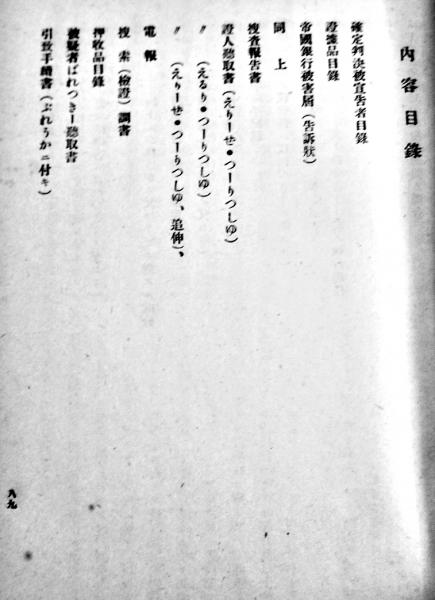 內容目錄
確定判決被宣告者目錄
證據品目錄
帝國銀行被害屆(告訴狀)
同上
搜査報告書
證人聽取書(えりーせ・つーりつしゆ)
〃(えるり・つーりつしゆ)
〃(えりーせ・つーりつしゆ、追伸)、
電報
搜索(檢證)調書
押收品目錄
被疑者ばれつきー聽取書
引致手續書(ぶれうかニ付キ)
八九